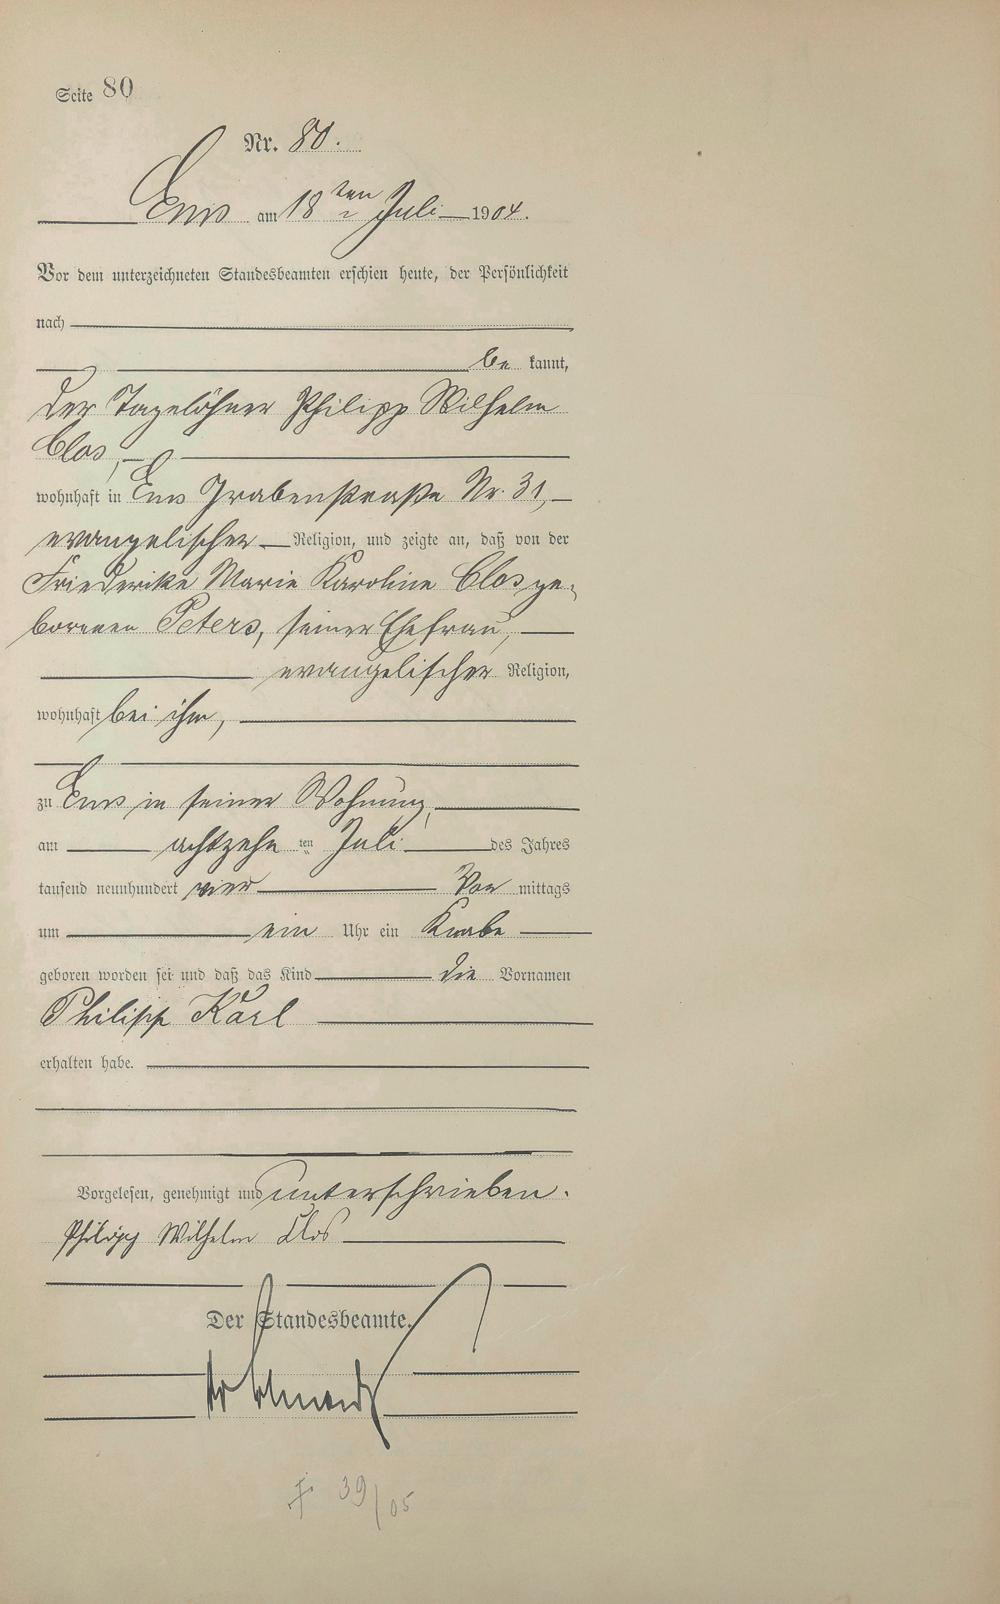 Seite 80
Nr. 80.
Ems am 18ten Juli 1904.
Vor dem unterzeichneten Standesbeamten erschien heute, der Persönlichkeit
nach
be kannt,
der Tagelöhner Philipp Wilhelm
Clos,
wohnhaft in Ems Grabenstraße Nr. 31,
evangelischer Religion, und zeigte an, daß von der
Friederike Marie Karoline Clos ge-
borenen Peters, seiner Ehefrau,
evangelischer Religion,
wohnhaft bei ihm,
zu Ems in seiner Wohnung,
am achtzehn ten Juli des Jahres
tausend neunhundert vier Vor mittags
um ein Uhr ein Knabe
geboren worden sei und daß das Kind die Vornamen
Philipp Karl
erhalten habe.
Vorgelesen, genehmigt und unterschrieben.
Philipp Wilhelm Clos
Der Standesbeamte.
39/05